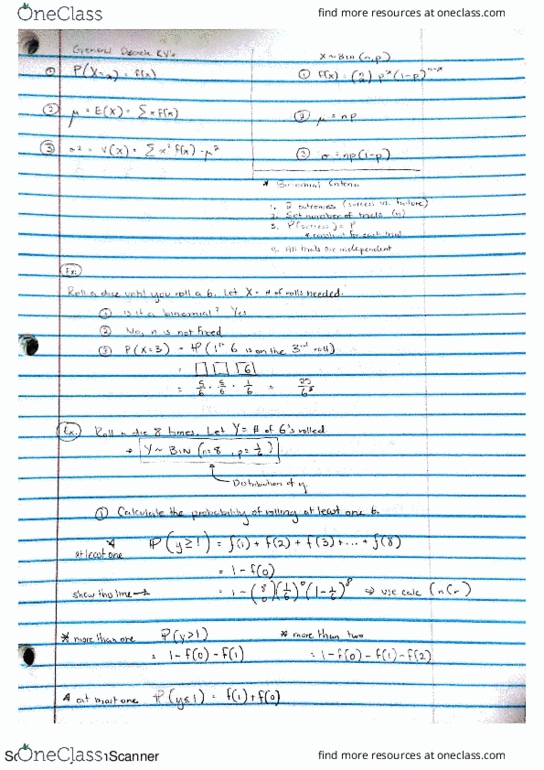 OneClass
find more resources at oneclass.com
General Discrete RV's
X ~ Bin (n,p)
① P(X=x) = f(x)
① f(x) = (n x) p^x (1-p)^n-x
② μ = E(X) = Σ x f(x)
② μ = np
③ σ² = V(X) = Σ x² f(x) - μ²
③ σ² = np(1-p)
* Binomial Criteria
1. 2 outcomes (success vs. failure)
2. Set number of trials (n)
3. P(success) = p
* constant for each trial
4. All trials are independent
Ex:
Roll a dice until you roll a 6. Let X = # of rolls needed.
① Is it a binomial? Yes
② No, n is not fixed
③ P(X=3) = P(1st 6 is on the 3rd roll)
= 6
= 5/6 · 5/6 · 1/6 = 25/6³
Ex. Roll a die 8 times. Let Y = # of 6's rolled
→ Y ~ BIN (n=8, p=1/6)
Distribution of y
① Calculate the probability of rolling at least one 6.
at least one P(y ≥ 1) = f(1) + f(2) + f(3) + ... + f(8)
= 1 - f(0)
show this line → = 1 - (8 0)(1/6)^0(1-1/6)^8 ⇒ use calc (nCr)
* more than one P(y>1)
* more than two
= 1 - f(0) - f(1)
= 1 - f(0) - f(1) - f(2)
* at most one P(y≤1) = f(1) + f(0)
OneClass
Scanner
find more resources at oneclass.com